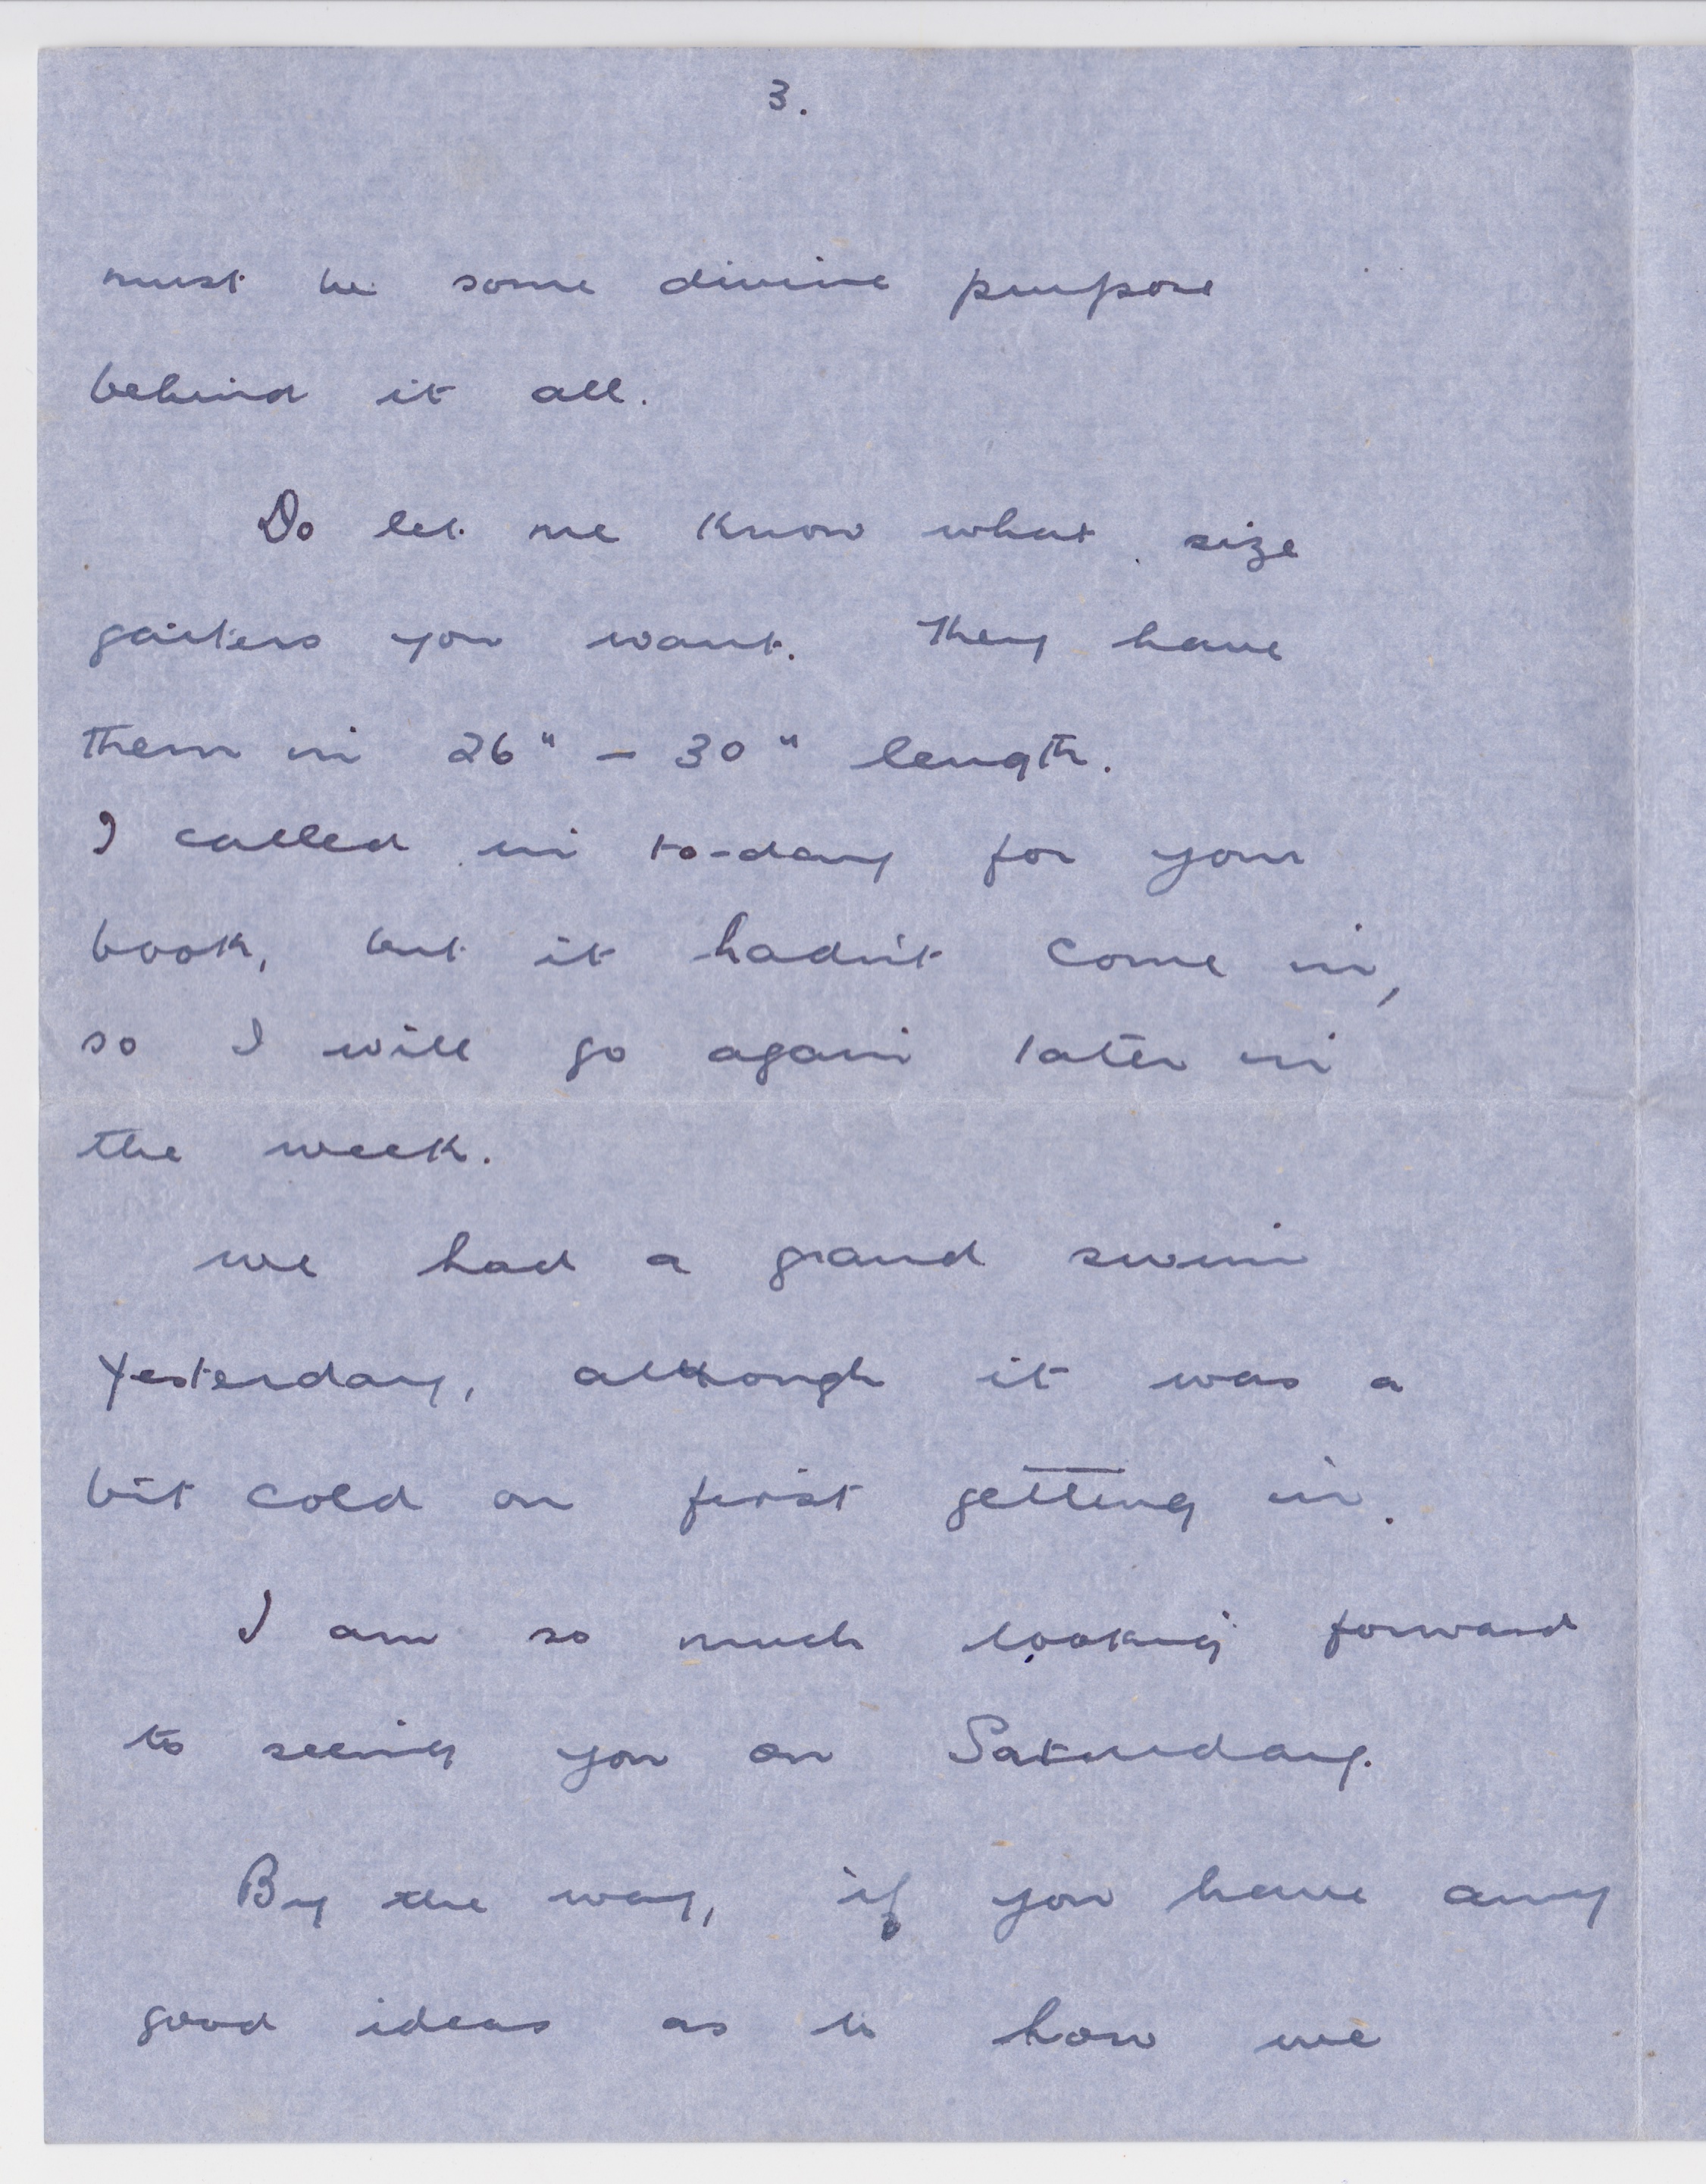 3.
must be some divine purpose
behind it all.
Do let me know what size
gaiters you want. They have
them in 26" - 30" length.
I called in to-day for your
book, but it hadn't come in,
so I will go again later in
the week.
we had a grand swim
yesterday, although it was a
bit cold on first getting in.
I am so much looking forward
to seeing you on Saturday.
By the way, if you have any
good ideas as to how we